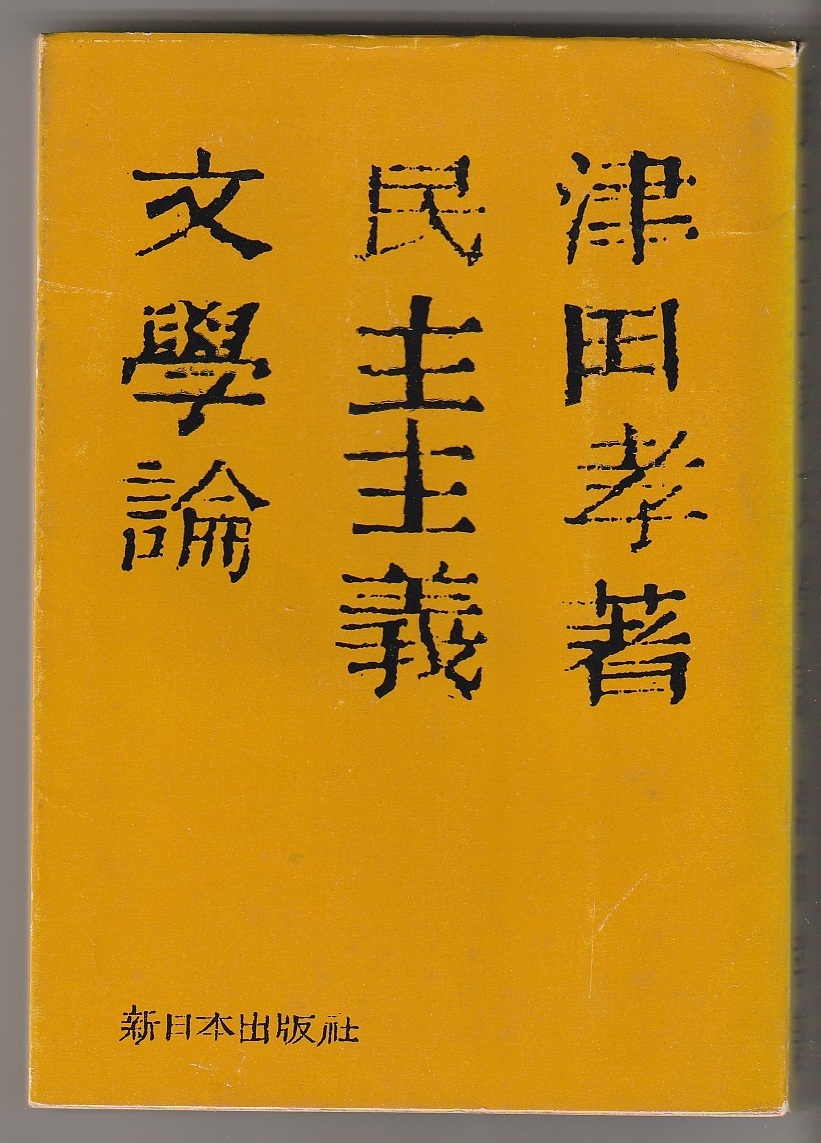 津田孝著
民主主義
文學論
新日本出版社